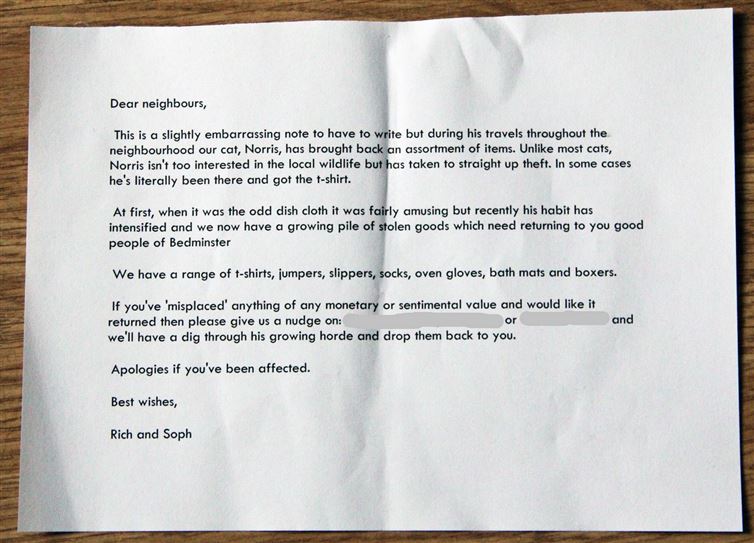 Dear neighbours,
This is a slightly embarrassing note to have to write but during his travels throughout the
neighbourhood our cat, Norris, has brought back an assortment of items. Unlike most cats,
Norris isn't too interested in the local wildlife but has taken to straight up theft. In some cases
he's literally been there and got the t-shirt.
At first, when it was the odd dish cloth it was fairly amusing but recently his habit has
intensified and we now have a growing pile of stolen goods which need returning to you good
people of Bedminster
We have a range of t-shirts, jumpers, slippers, socks, oven gloves, bath mats and boxers.
If you've 'misplaced' anything of any monetary or sentimental value and would like it
returned then please give us a nudge on: or and
we'll have a dig through his growing horde and drop them back to you.
Apologies if you've been affected.
Best wishes,
Rich and Soph